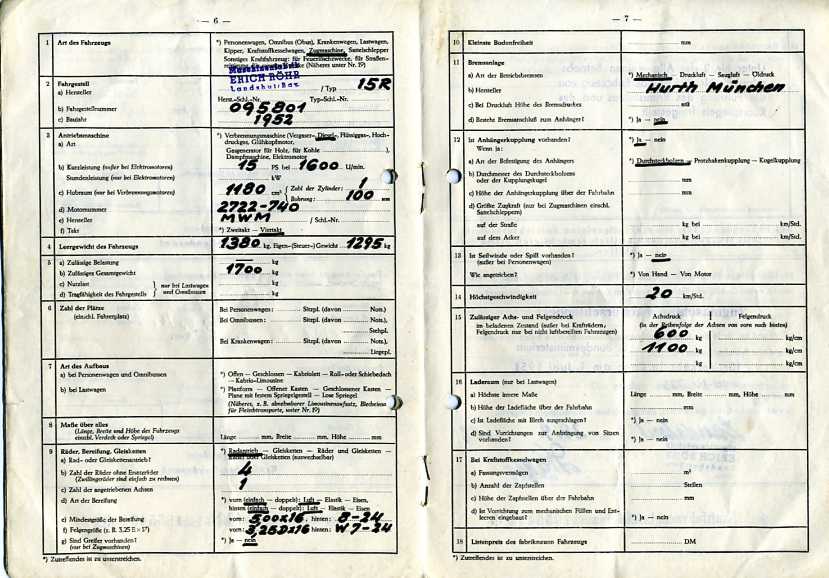 — 6 —
1 Art des Fahrzeugs
*) Personenwagen, Omnibus (Obus), Krankenwagen, Lastwagen,
Kipper, Kraftstoffkesselwagen, Zugmaschine, Sattelschlepper
Sonstiges Kraftfahrzeug: für Feuerlöschzwecke, für Straßen-
(Näheres unter Nr. 19)
Maschinenfabrik
ERICH RÖHR
Landshut/Bay.
2 Fahrgestell
a) Hersteller
/ Typ 15R
Herst.-Schl.-Nr. Typ-Schl.-Nr.
b) Fahrgestellnummer 095801
c) Baujahr 1952
3 Antriebsmaschine
a) Art
*) Verbrennungsmaschine (Vergaser-, Diesel-, Flüssiggas-, Hoch-
druckgas, Glühkopfmotor,
Gasgenerator für Holz, für Kohle ),
Dampfmaschine, Elektromotor
b) Kurzleistung (außer bei Elektromotoren) 15 PS bei 1600 U/min.
Stundenleistung (nur bei Elektromotoren) kW
c) Hubraum (nur bei Verbrennungsmotoren) 1180 cm³ { Zahl der Zylinder: 1
Bohrung: 100 mm
d) Motornummer 2722-740
e) Hersteller MWM / Schl.-Nr.
f) Takt *) Zweitakt — Viertakt
4 Leergewicht des Fahrzeugs 1380 kg, Eigen-(Steuer-) Gewicht 1295 kg
5 a) Zulässige Belastung kg
b) Zulässiges Gesamtgewicht 1700 kg
c) Nutzlast } nur bei Lastwagen kg
d) Tragfähigkeit des Fahrgestells } und Omnibussen kg
6 Zahl der Plätze
(einschl. Fahrerplatz)
Bei Personenwagen: Sitzpl. (davon Nots.)
Bei Omnibussen: Sitzpl. (davon Nots.)
Stehpl.
Bei Krankenwagen: Sitzpl. (davon Nots.)
Liegepl.
7 Art des Aufbaus
a) bei Personenwagen und Omnibussen
*) Offen — Geschlossen — Kabriolett — Roll- oder Schiebedach
— Kabrio-Limousine
b) bei Lastwagen
*) Plattform — Offener Kasten — Geschlossener Kasten —
Plane mit festem Spriegelgestell — Lose Spriegel
(Näheres, z. B. abnehmbarer Limousinenaufsatz, Blecheinsatz
für Fleischtransporte, unter Nr. 19)
8 Maße über alles
(Länge, Breite und Höhe des Fahrzeugs
einschl. Verdeck oder Spriegel)
Länge mm, Breite mm, Höhe mm
9 Räder, Bereifung, Gleisketten
a) Rad- oder Gleiskettenantrieb?
*) Radantrieb — Gleisketten — Räder und Gleisketten —
Räder oder Gleisketten (auswechselbar)
b) Zahl der Räder ohne Ersatzräder 4
(Zwillingsräder sind einfach zu rechnen)
c) Zahl der angetriebenen Achsen 1
d) Art der Bereifung
*) vorn (einfach — doppelt): Luft — Elastik — Eisen,
hinten (einfach — doppelt): Luft — Elastik — Eisen
e) Mindestgröße der Bereifung vorn: 5,00x16, hinten: 8-24
f) Felgengröße (z. B. 3,25 E × 17) vorn: 3,25Dx16 hinten: W7-24
g) Sind Greifer vorhanden? *) Ja — nein
(nur bei Zugmaschinen)
*) Zutreffendes ist zu unterstreichen.
— 7 —
10 Kleinste Bodenfreiheit mm
11 Bremsanlage
a) Art der Betriebsbremsen *) Mechanisch — Druckluft — Saugluft — Öldruck
b) Hersteller Hurth München
c) Bei Druckluft Höhe des Bremsdruckes atü
d) Besteht Bremsanschluß zum Anhänger? *) Ja — nein
12 Ist Anhängerkupplung vorhanden? *) Ja — nein
Wenn ja:
a) Art der Befestigung des Anhängers *) Durchsteckbolzen — Protzhakenkupplung — Kugelkupplung
b) Durchmesser des Durchsteckbolzens
oder der Kupplungskugel mm
c) Höhe der Anhängerkupplung über der Fahrbahn mm
d) Größte Zugkraft (nur bei Zugmaschinen einschl.
Sattelschleppern)
auf der Straße kg bei km/Std.
auf dem Acker kg bei km/Std.
13 Ist Seilwinde oder Spill vorhanden? *) Ja — nein
(außer bei Personenwagen)
Wie angetrieben? *) Von Hand — Von Motor
14 Höchstgeschwindigkeit 20 km/Std.
15 Zulässiger Achs- und Felgendruck
im beladenen Zustand (außer bei Krafträdern,
Felgendruck nur bei nicht luftbereiften Fahrzeugen)
Achsdruck Felgendruck
(in der Reihenfolge der Achsen von vorn nach hinten)
600 kg kg/cm
1100 kg kg/cm
kg kg/cm
16 Laderaum (nur bei Lastwagen)
a) Höchste innere Maße Länge mm, Breite mm, Höhe mm
b) Höhe der Ladefläche über der Fahrbahn mm
c) Ist Ladefläche mit Blech ausgeschlagen? *) Ja — nein
d) Sind Vorrichtungen zur Anbringung von Sitzen
vorhanden? *) Ja — nein
17 Bei Kraftstoffkesselwagen
a) Fassungsvermögen m³
b) Anzahl der Zapfstellen Stellen
c) Höhe der Zapfstellen über der Fahrbahn mm
d) Ist Vorrichtung zum mechanischen Füllen und Ent-
leeren eingebaut? *) Ja — nein
18 Listenpreis des fabrikneuen Fahrzeugs DM
*) Zutreffendes ist zu unterstreichen.